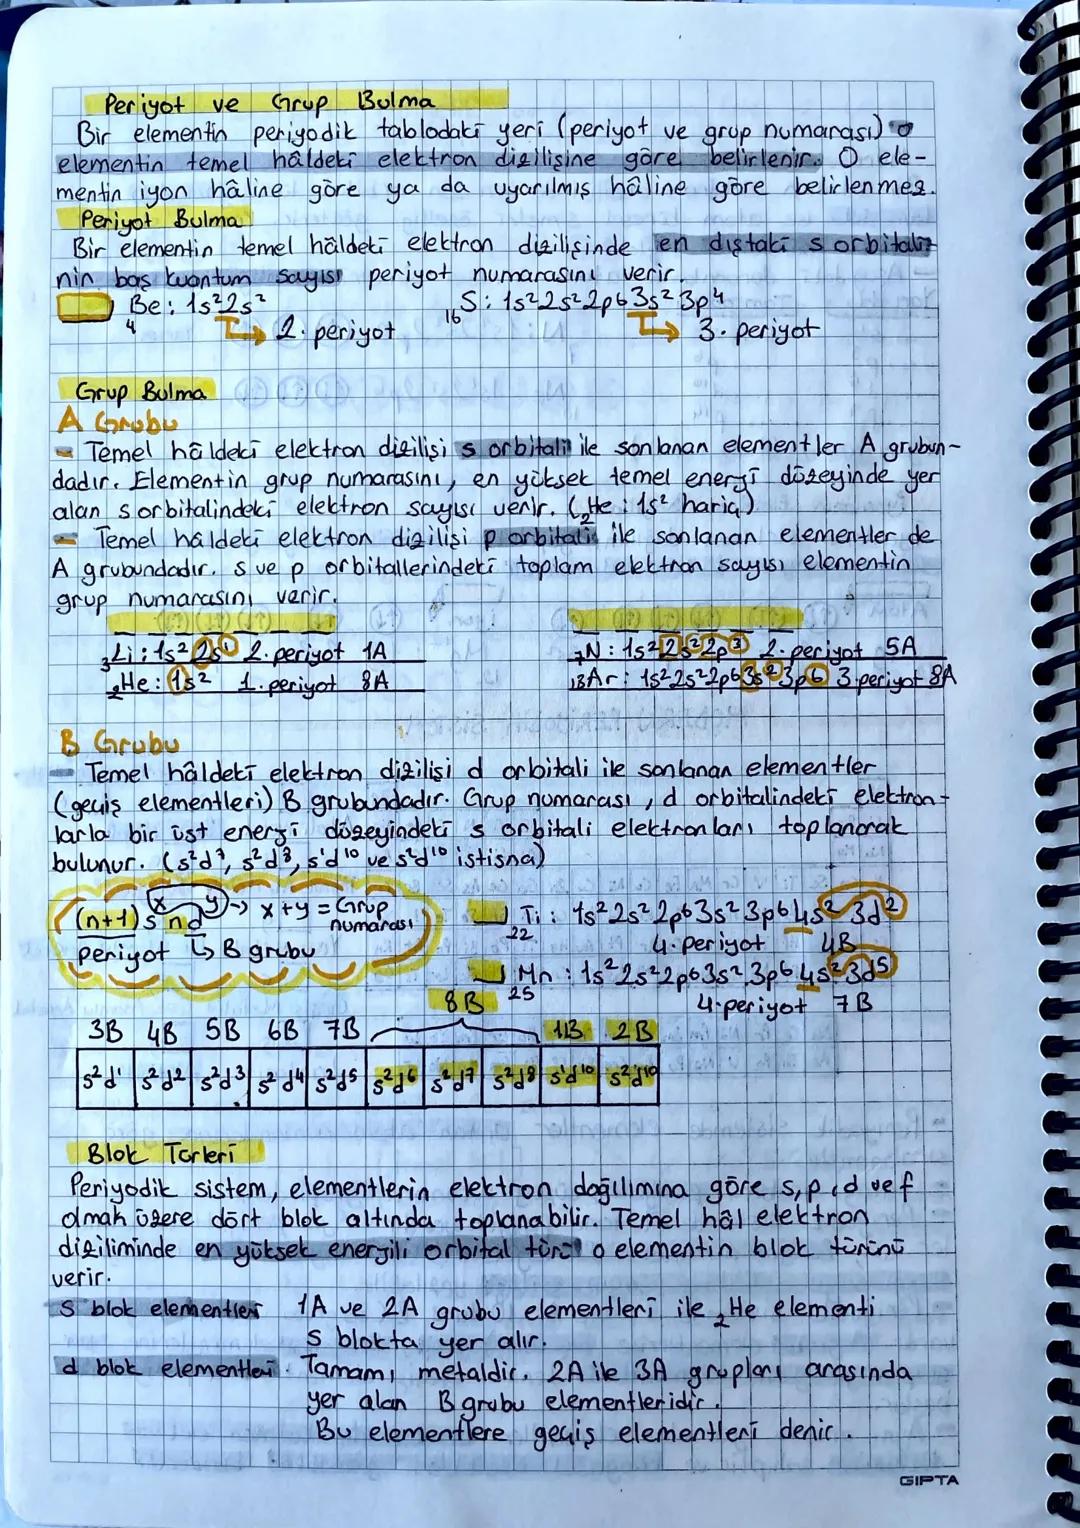 Periyot ve Grup Bulma
Bir elementin periyodik tablodaki yeri (periyot ve grup numarası) o
elementin temel hâldeki elektron dizilişine göre belirlenir. O ele-
mentin iyon hâline göre ya da uyarılmış hâline göre belirlenmez.
Periyot Bulma
Bir elementin temel hâldeki elektron dizilişinde en dıştaki s orbitali-
nin baş kuantum sayısı periyot numarasını verir.
₄Be: 1s²2s² ₁₆S: 1s²2s²2p⁶3s²3p⁴
→ 2. periyot → 3. periyot
Grup Bulma
A Grubu
- Temel hâldeki elektron dizilişi s orbitali ile sonlanan elementler A grubun-
dadır. Elementin grup numarasını, en yüksek temel enerji düzeyinde yer
alan s orbitalindeki elektron sayısı verir. (₂He: 1s² hariç)
- Temel hâldeki elektron dizilişi p orbitali ile sonlanan elementler de
A grubundadır. s ve p orbitallerindeki toplam elektron sayısı elementin
grup numarasını verir.
₃Li: 1s²2s¹ 2. periyot 1A ₇N: 1s²2s²2p³ 2. periyot 5A
₂He: 1s² 1. periyot 8A ₁₈Ar: 1s²2s²2p⁶3s²3p⁶ 3. periyot 8A
B Grubu
- Temel hâldeki elektron dizilişi d orbitali ile sonlanan elementler
(geçiş elementleri) B grubundadır. Grup numarası, d orbitalindeki elektron-
larla bir üst enerji düzeyindeki s orbitali elektronları toplanarak
bulunur. (s²d⁷, s²d⁸, s¹d¹⁰ ve s²d¹⁰ istisna)
(n+1)sˣ ndʸ → x+y = Grup numarası
periyot ↳ B grubu
₂₂Ti: 1s²2s²2p⁶3s²3p⁶4s²3d²
4. periyot 4B
₂₅Mn: 1s²2s²2p⁶3s²3p⁶4s²3d⁵
4. periyot 7B
3B 4B 5B 6B 7B 8B 1B 2B
s²d¹ s²d² s²d³ s²d⁴ s²d⁵ s²d⁶ s²d⁷ s²d⁸ s¹d¹⁰ s²d¹⁰
Blok Türleri
Periyodik sistem, elementlerin elektron dağılımına göre s, p, d ve f
olmak üzere dört blok altında toplanabilir. Temel hâl elektron
diziliminde en yüksek enerjili orbital türü o elementin blok türünü
verir.
s blok elementleri 1A ve 2A grubu elementleri ile ₂He elementi
s blokta yer alır.
d blok elementleri. Tamamı metaldir. 2A ile 3A grupları arasında
yer alan B grubu elementleridir.
Bu elementlere geçiş elementleri denir.
GIPTA